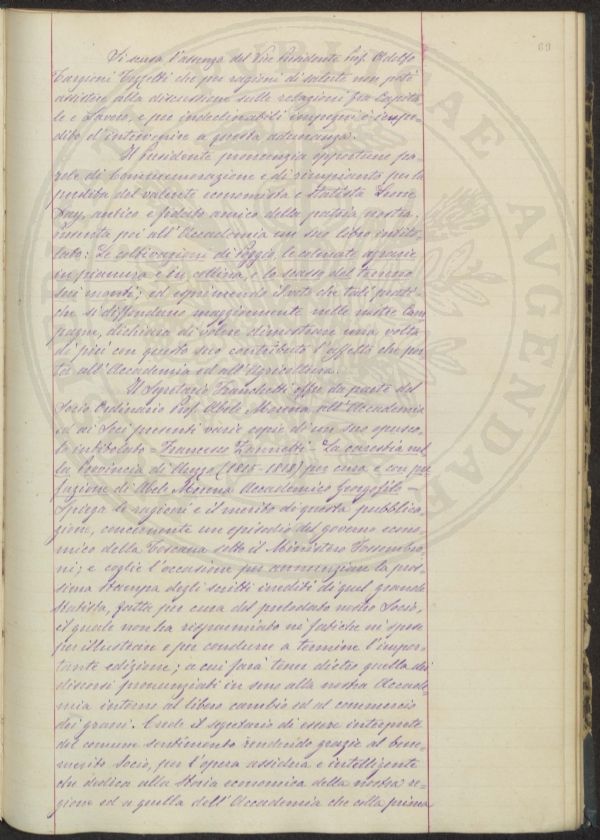 69
Si scusa l'assenza del Vice Presidente Prof. Adolfo
Targioni Tozzetti che per ragioni di salute non potè
assistere alla discussione sulle relazioni fra Capita-
le e Lavoro, e per indeclinabili impegni è impe-
dito d'intervenire a questa adunanza.
Il Presidente pronunzia opportune pa-
role di commemorazione e di rimpianto per la
perdita del valente economista e statista Leone
Say, antico e fidato amico della patria nostra.
Presenta poi all'Accademia un suo libro intito-
lato: Le coltivazioni di Poggio, le colmate agrarie
in pianura e in collina e lo scasso del terreno
sui monti; ed esprimendo il voto che tali prati-
che si diffondano maggiormente nelle nostre Cam-
pagne, dichiara di volere dimostrare una volta
di più con questo suo contributo l'affetto che por-
ta all'Accademia ed all'Agricoltura.
Il Segretario Franchetti offre da parte del
Socio Ordinario Prof. Abele Morena all'Accademia
ed ai Soci presenti varie copie di un suo opusco-
lo intitolato = Francesco Zannetti. La carestia nel-
la Provincia di Arezzo (1815-1818) per cura e con pre-
fazione di Abele Morena Accademico Georgofilo =
Spiega le ragioni e il merito di questa pubblica-
zione, concernente un episodio del governo econo-
mico della Toscana sotto il Ministero Fossombro-
ni; e coglie l'occasione per annunziare la pros-
sima stampa degli scritti inediti di quel grande
statista, fatta per cura del prelodato nostro Socio,
il quale non ha risparmiato nè fatiche nè spese
per illustrare e per condurre a termine l'impor-
tante edizione; a cui farà tener dietro quella dei
discorsi pronunziati in seno alla nostra Accade-
mia intorno al libero cambio ed al commercio
dei grani. Crede il segretario di essere interprete
del comune sentimento rendendo grazie al bene-
merito Socio, per l'opera assidua e intelligente
che dedica alla Storia economica della nostra re-
gione ed a quella dell'Accademia che colla prima